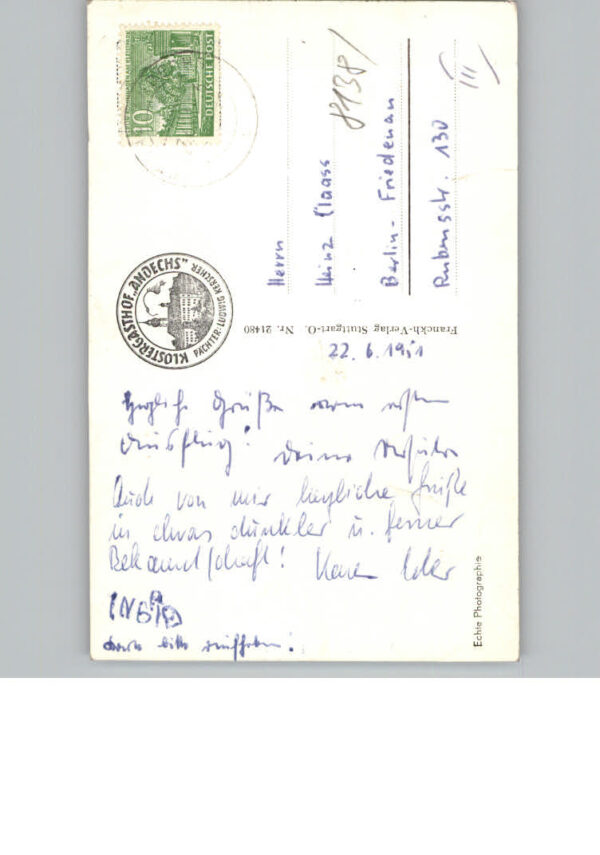 10
DEUTSCHE POST
8138/
III
Herrn
Heinz Claass
Berlin - Friedenau
Rubensstr. 130
KLOSTERGASTHOF „ANDECHS"
PÄCHTER: LUDWIG KERSCHER
Franckh-Verlag Stuttgart-O. Nr. 21480
22. 6. 1951
Herzliche Grüße vom ersten
Ausflug! Deine
Auch von mir herzliche Grüße
in etwas dunkler u. ferner
Bekanntschaft!
bitte aufheben!
Echte Photographie